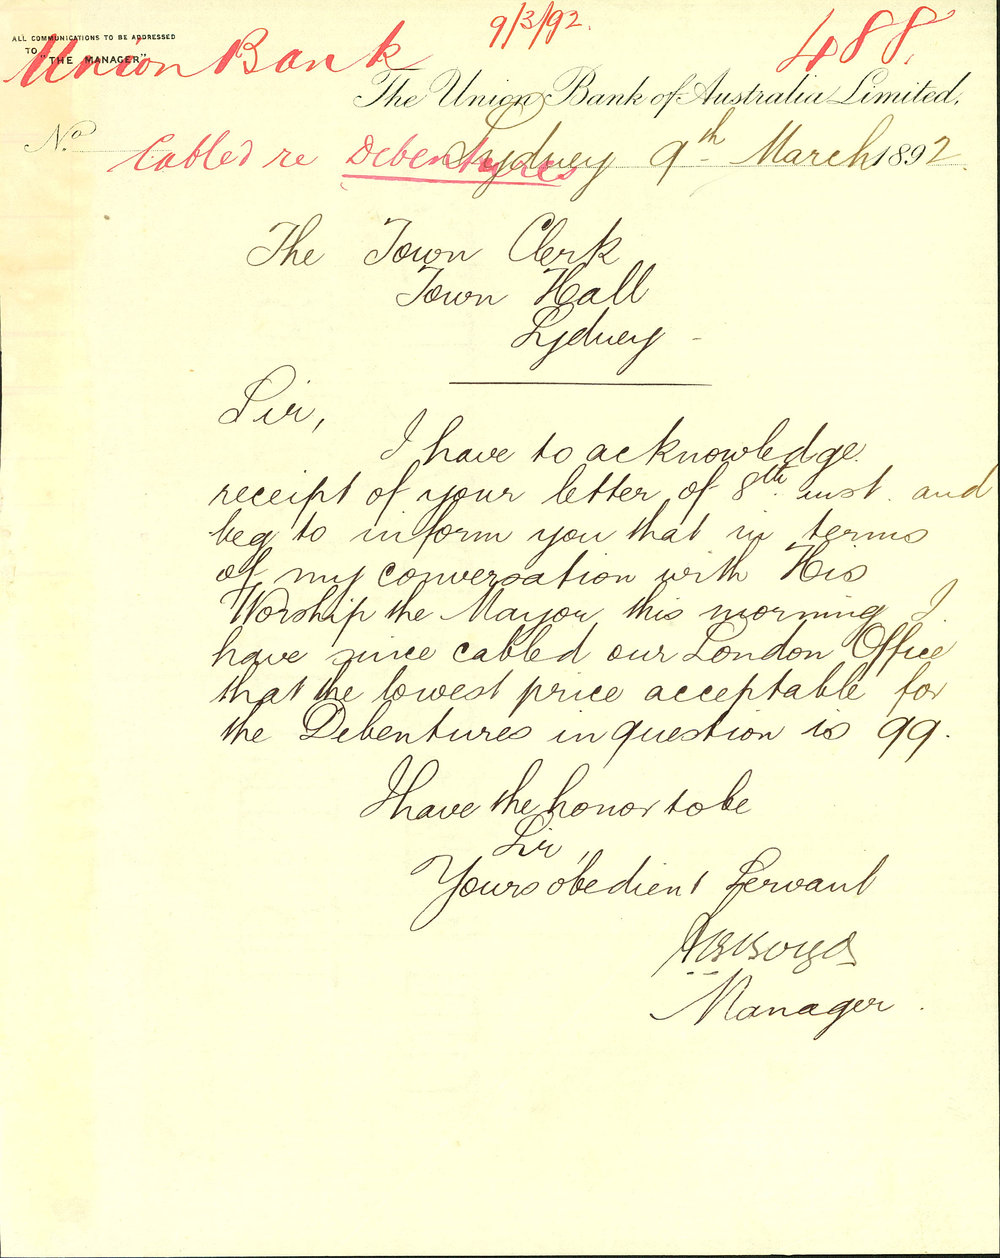 ALL COMMUNICATIONS TO BE ADDRESSED
TO "THE MANAGER"
Union Bank
9/3/92.
488.
The Union Bank of Australia Limited.
No.
Cabled re Debentures
Sydney 9th March 1892.
The Town Clerk
Town Hall
Sydney -
Sir,
I have to acknowledge
receipt of your letter of 8th inst. and
beg to inform you that in terms
of my conversation with His
Worship the Mayor this morning I
have since cabled our London Office
that the lowest price acceptable for
the Debentures in question is 99.
I have the honor to be
Sir,
Yours obedient Servant
Manager.